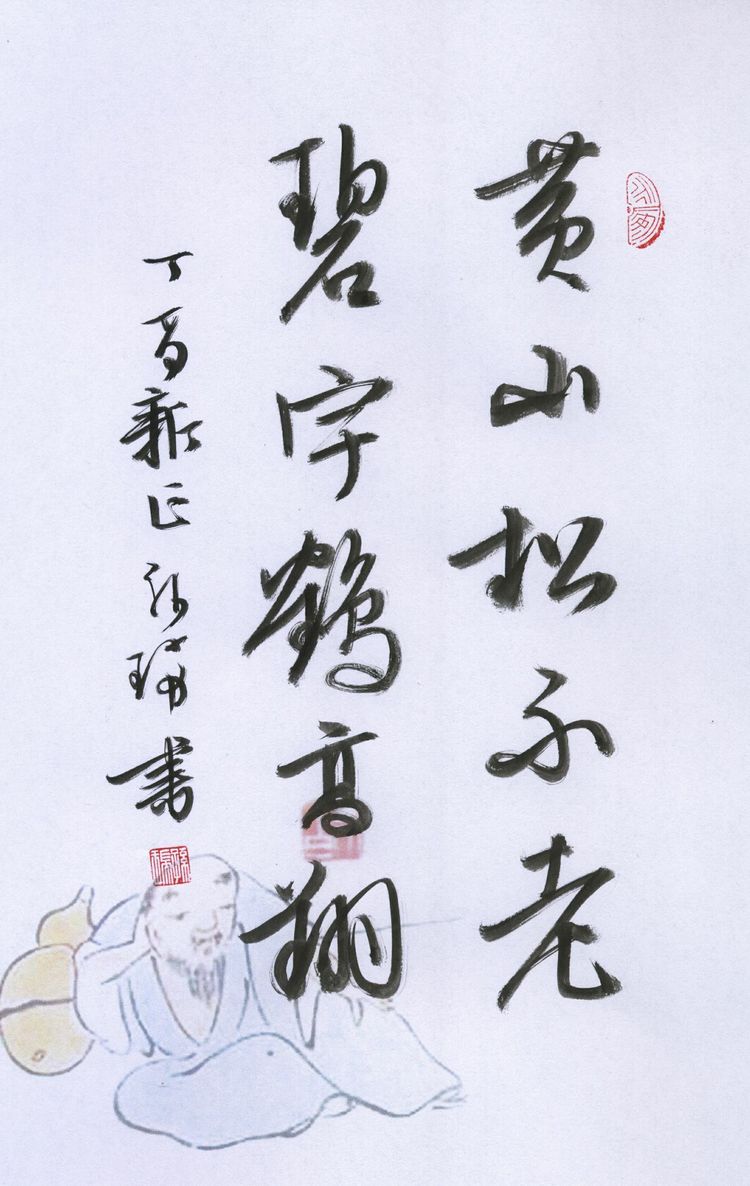 黄山松不老
碧宇鹤高翔
丁酉新正 瑞书